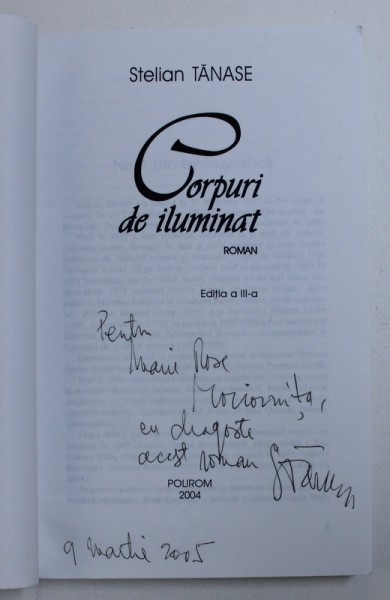 Stelian TĂNASE
Corpuri
de iluminat
ROMAN
Ediția a III-a
Pentru
Marie Rose
Mociorniță,
cu dragoste
acest roman
STănase
POLIROM
2004
9 martie 2005